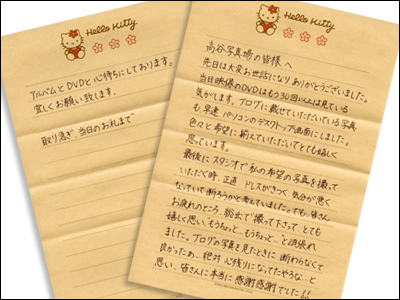 Hello Kitty
高谷写真場の皆様へ
先日は大変お世話になりありがとうございました。
当日映像のDVDはもう30回以上は見ている
気がします。ブログに載せていただいている写真
も早速パソコンのデスクトップ画面にしました。
色々と希望に揃えていただいてとても嬉しく
思っています。
最後にスタジオで私の希望の写真を撮って
いただく時、正直ドレスがきつく気分が悪く
なっていて断ろうかと考えていました。でも、皆さん
お疲れのところ、総出で"撮って下さって、とても
嬉しく思い"もうちょっと…もうちょっと…"と頑張れ
ました。ブログの写真を見たときに断わらなくて
良かったぁ、絶対心残りになってたやろな…と
思い、皆さんに本当に感謝感謝でした!!
Hello Kitty
アルバムとDVDと心待ちにしております。
宜しくお願い致します。
取り急ぎ、当日のお礼まで